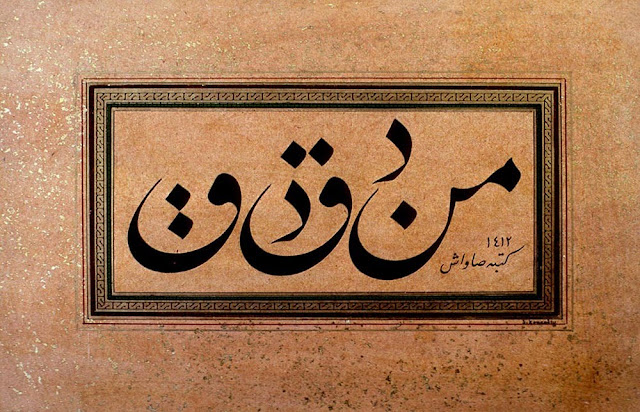 من دق دق
١٤١٢
كتبه صاواش